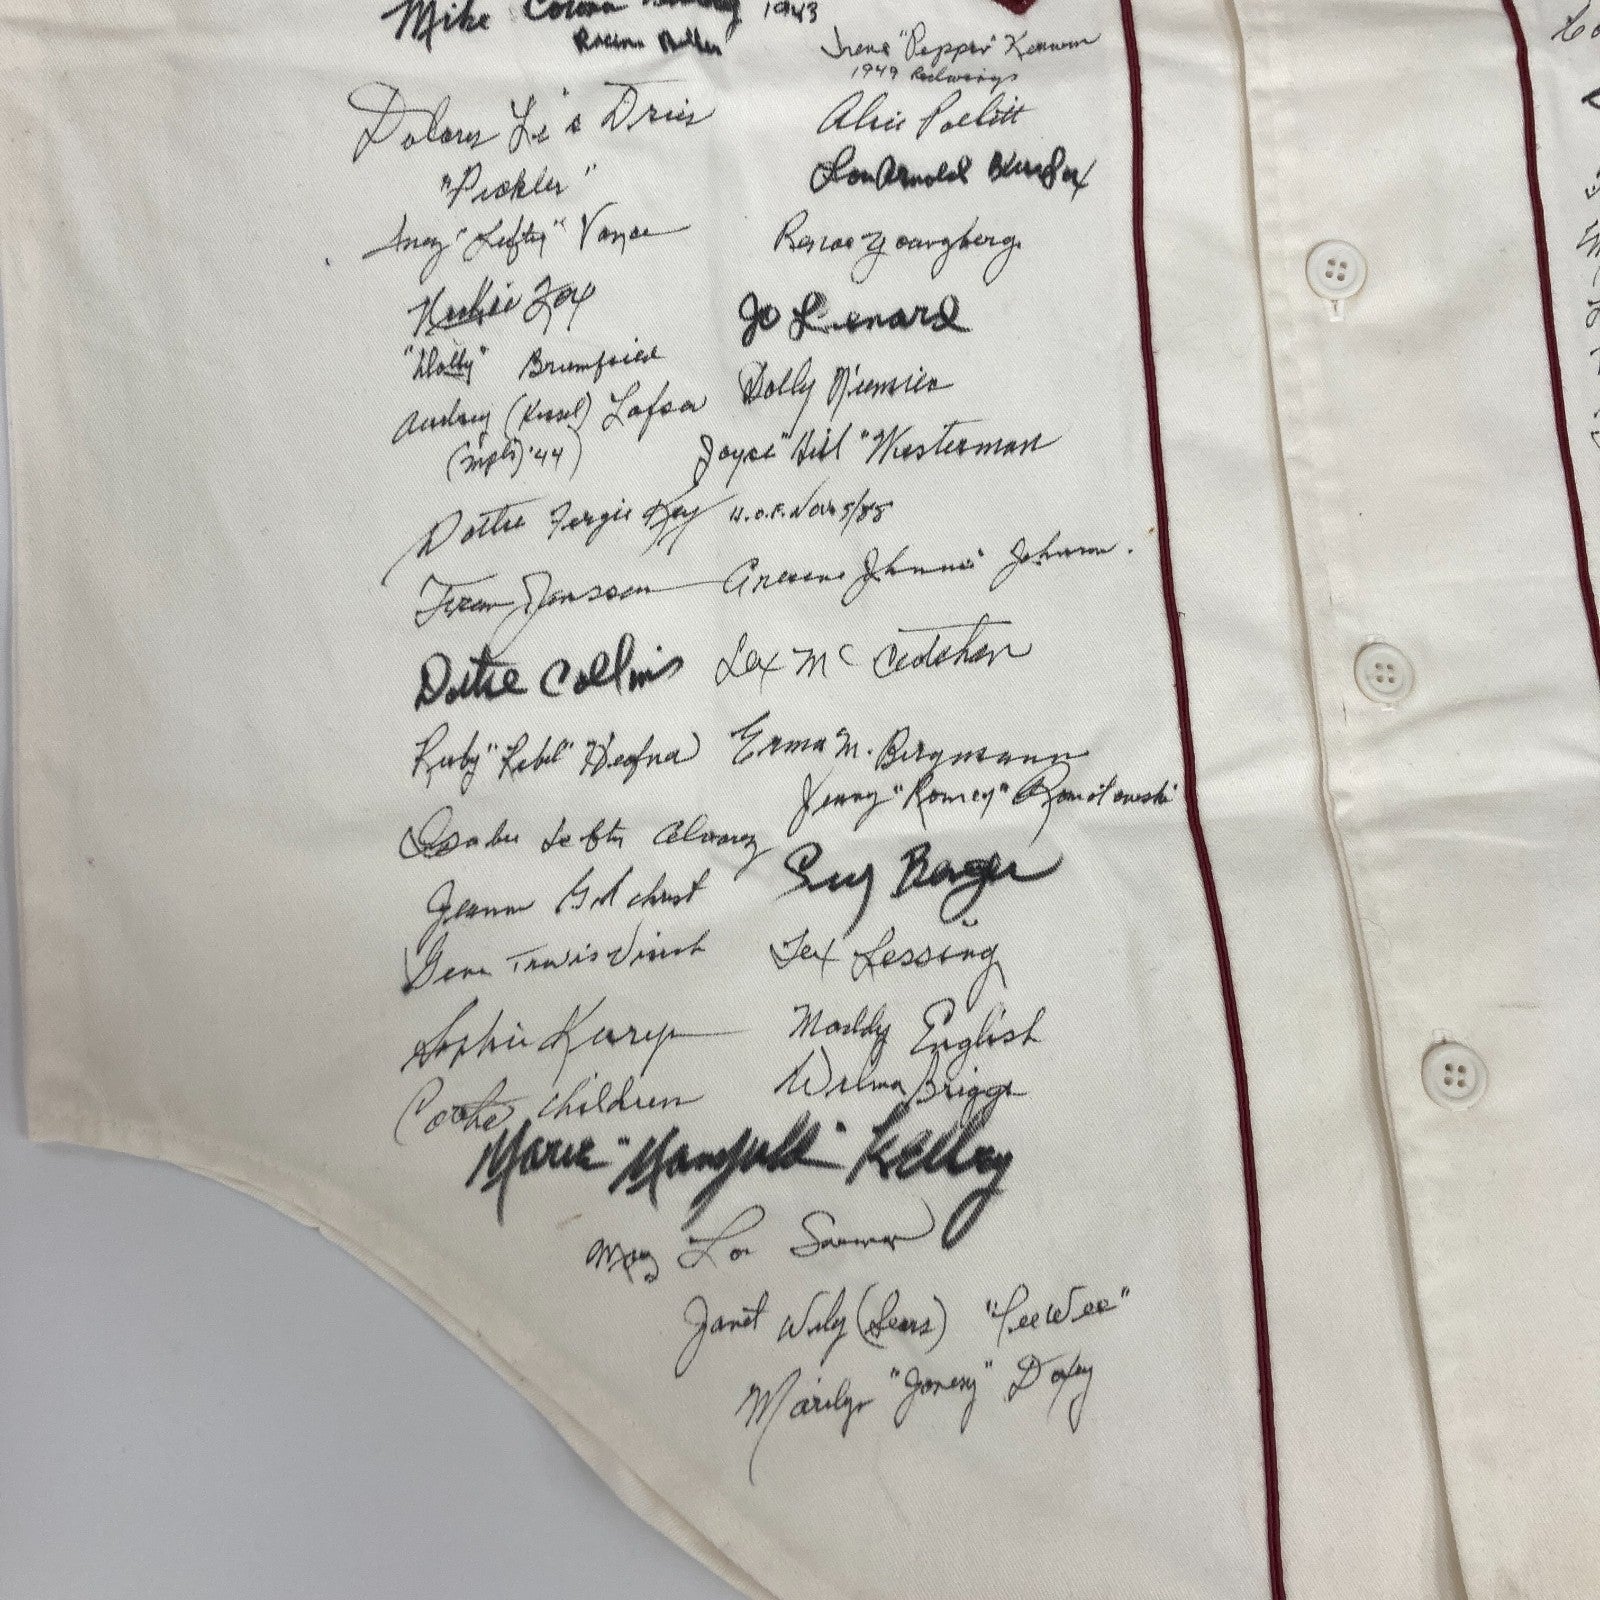 Mike 1943
Irene "Pepper" Kerwin
1949 Redwings
Dolores Dries
"Pickles"
Alice Pollitt
Lou Arnold Blue Sox
Inez "Lefty" Voyce
Youngberg
Nickie Fox
Jo Lenard
"Dolly" Brumfield
Dolly Niemiec
Audrey (Kissel) Lafser
(Mpls) '44
Joyce "Hill" Westerman
Dottie Fergie Key H.O.F. Nov 5/88
Fran Janssen
Arleene "Johnnie" Johnson.
Dottie Collins
Lex McCutchan
Ruby "Rebel" Heafner
Erma M. Bergmann
Jenny "Romey" Romatowski
Isabel Lefty Alvarez
Jeanne Gilchrist
Berger
Gene Travis Visich
Tex Lessing
Sophie Kurys
Maddy English
Children
Wilma Briggs
Marie "Mansfield" Kelley
May Lou
Janet Wiley (Sears) "Pee Wee"
Marilyn "Jonesy" Doxey